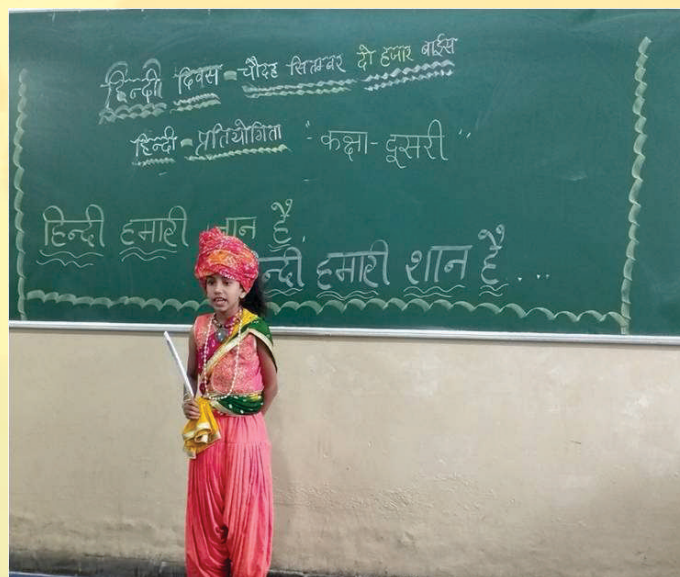 हिन्दी दिवस = चौदह सितम्बर दो हजार बाईस
हिन्दी = प्रतियोगिता "कक्षा - दूसरी"
हिन्दी हमारी है,
हमारी शान है...